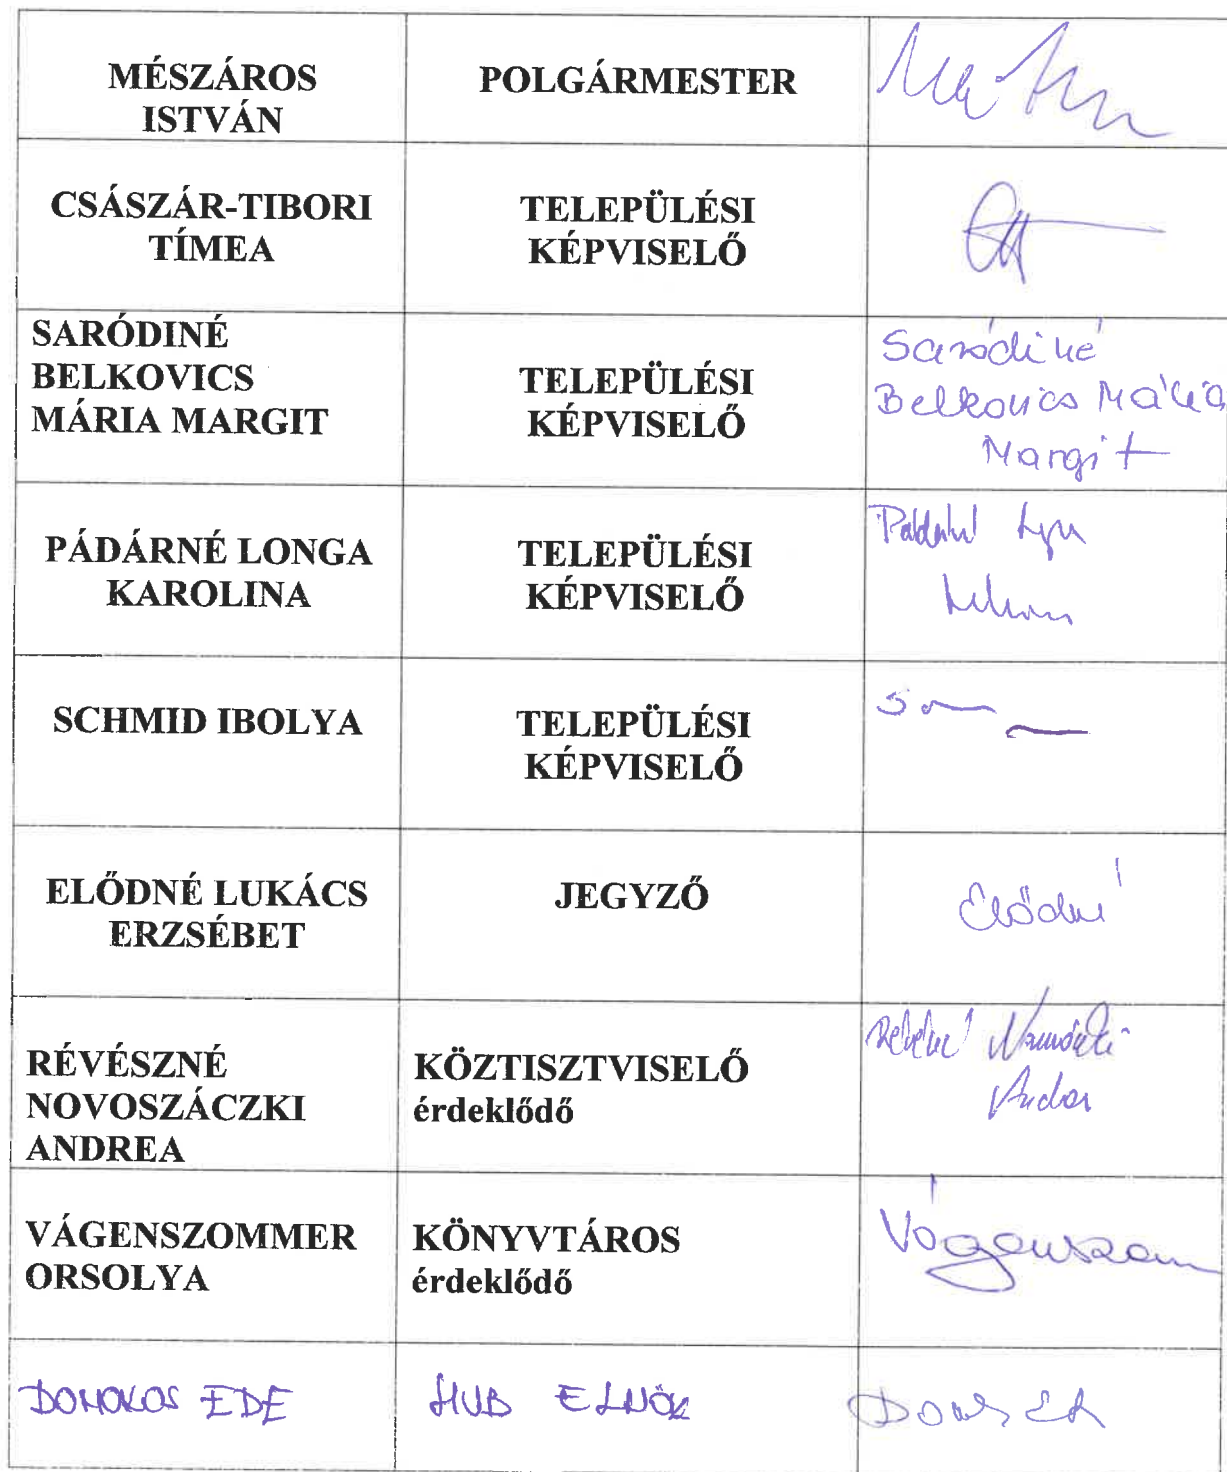 MÉSZÁROS
ISTVÁN
POLGÁRMESTER
CSÁSZÁR-TIBORI
TÍMEA
TELEPÜLÉSI
KÉPVISELŐ
SARÓDINÉ
BELKOVICS
MÁRIA MARGIT
TELEPÜLÉSI
KÉPVISELŐ
Saródiné
Belkovics Mária
Margit
PÁDÁRNÉ LONGA
KAROLINA
TELEPÜLÉSI
KÉPVISELŐ
SCHMID IBOLYA
TELEPÜLÉSI
KÉPVISELŐ
ELŐDNÉ LUKÁCS
ERZSÉBET
JEGYZŐ
Elődné
RÉVÉSZNÉ
NOVOSZÁCZKI
ANDREA
KÖZTISZTVISELŐ
érdeklődő
VÁGENSZOMMER
ORSOLYA
KÖNYVTÁROS
érdeklődő
DOMOKOS EDE
HUB ELNÖK